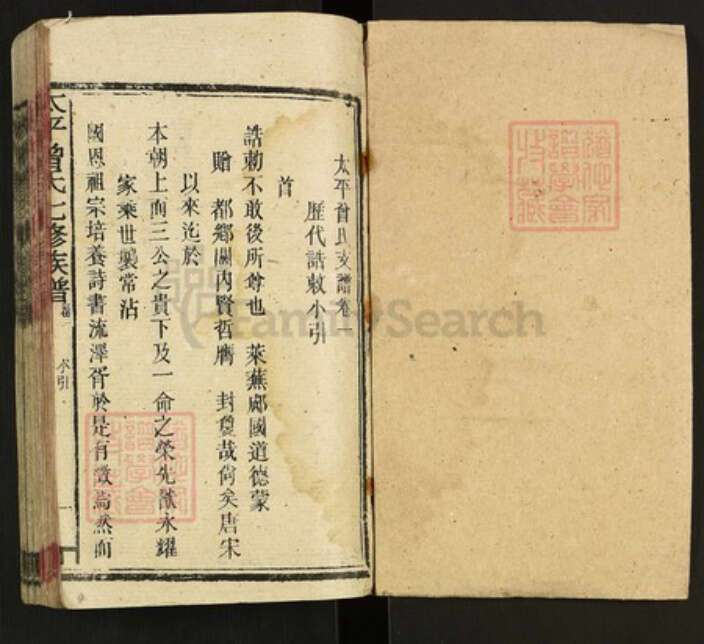 太平曾氏支譜卷一
歷代誥敕小引
首
誥勅不敢後所尊也 萊蕪郕國道德蒙
贈 都鄉關內賢哲膺 封夐哉尙矣唐宋
以來迄於
本朝上而三公之貴下及一命之榮先猷永耀
家乘世襲常沾
國恩祖宗培養詩書流澤胥於是有徵焉然而
太平曾氏七修族譜
卷一
小引
一
FamilySearch